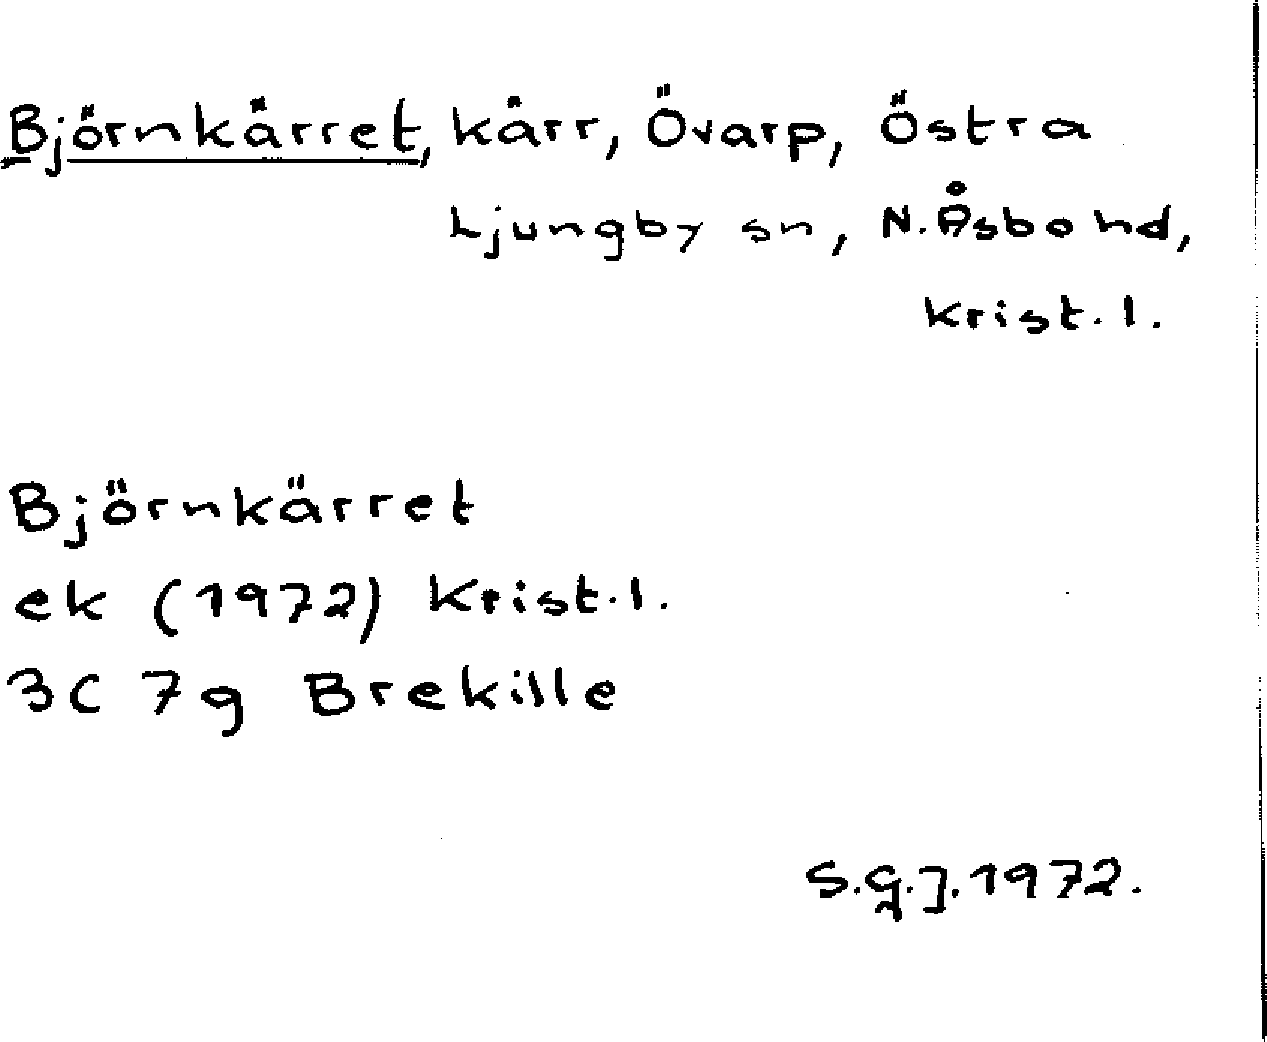 Björnkärret, kärr, Övarp, Östra
Ljungby sn, N. Åsbo hd,
Krist. l.
Björnkärret
ek (1972) Krist. l.
3C 7g Brekille
S.G.J. 1972.